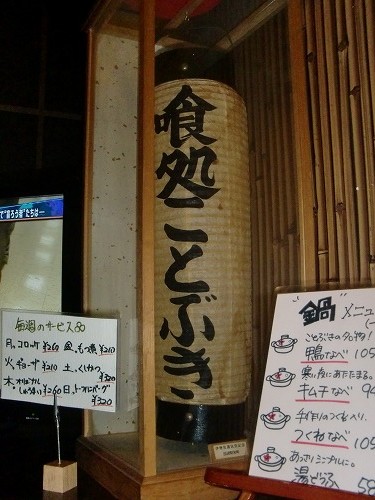 喰処ことぶき
で"蘇ろう者"たちは…
毎週のサービス品
月 コロッケ ¥260 金 もつ煮 ¥210
火 ギョーザ ¥210 土 くしやつ ¥320
木 ¥260 日 トーフハンバーグ ¥320
"鍋"メニュ
ことぶきの名物!
鴨なべ 105
寒い夜にあたたまる。
キムチなべ 94
手作りのつくね入り
つくねなべ 105
あっさりシンプルに。
湯どうふ 58